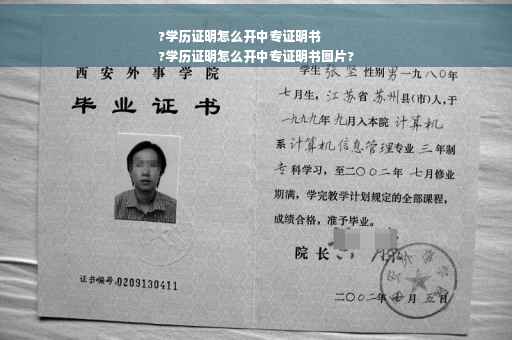 ?学历证明怎么开中专证明书
?学历证明怎么开中专证明书图片?
西安外事学院
毕业证书
证书编号:0209130411
学生 张 性别男一九八〇年
七月生，江苏省苏州县(市)人,于
一九九九年九月入本院 计算机
系计算机信息管理专业 三年制
专科学习，至二〇〇二年 七月修业
期满，学完教学计划规定的全部课程，
成绩合格，准予毕业。
院长
二〇〇二年 月五日